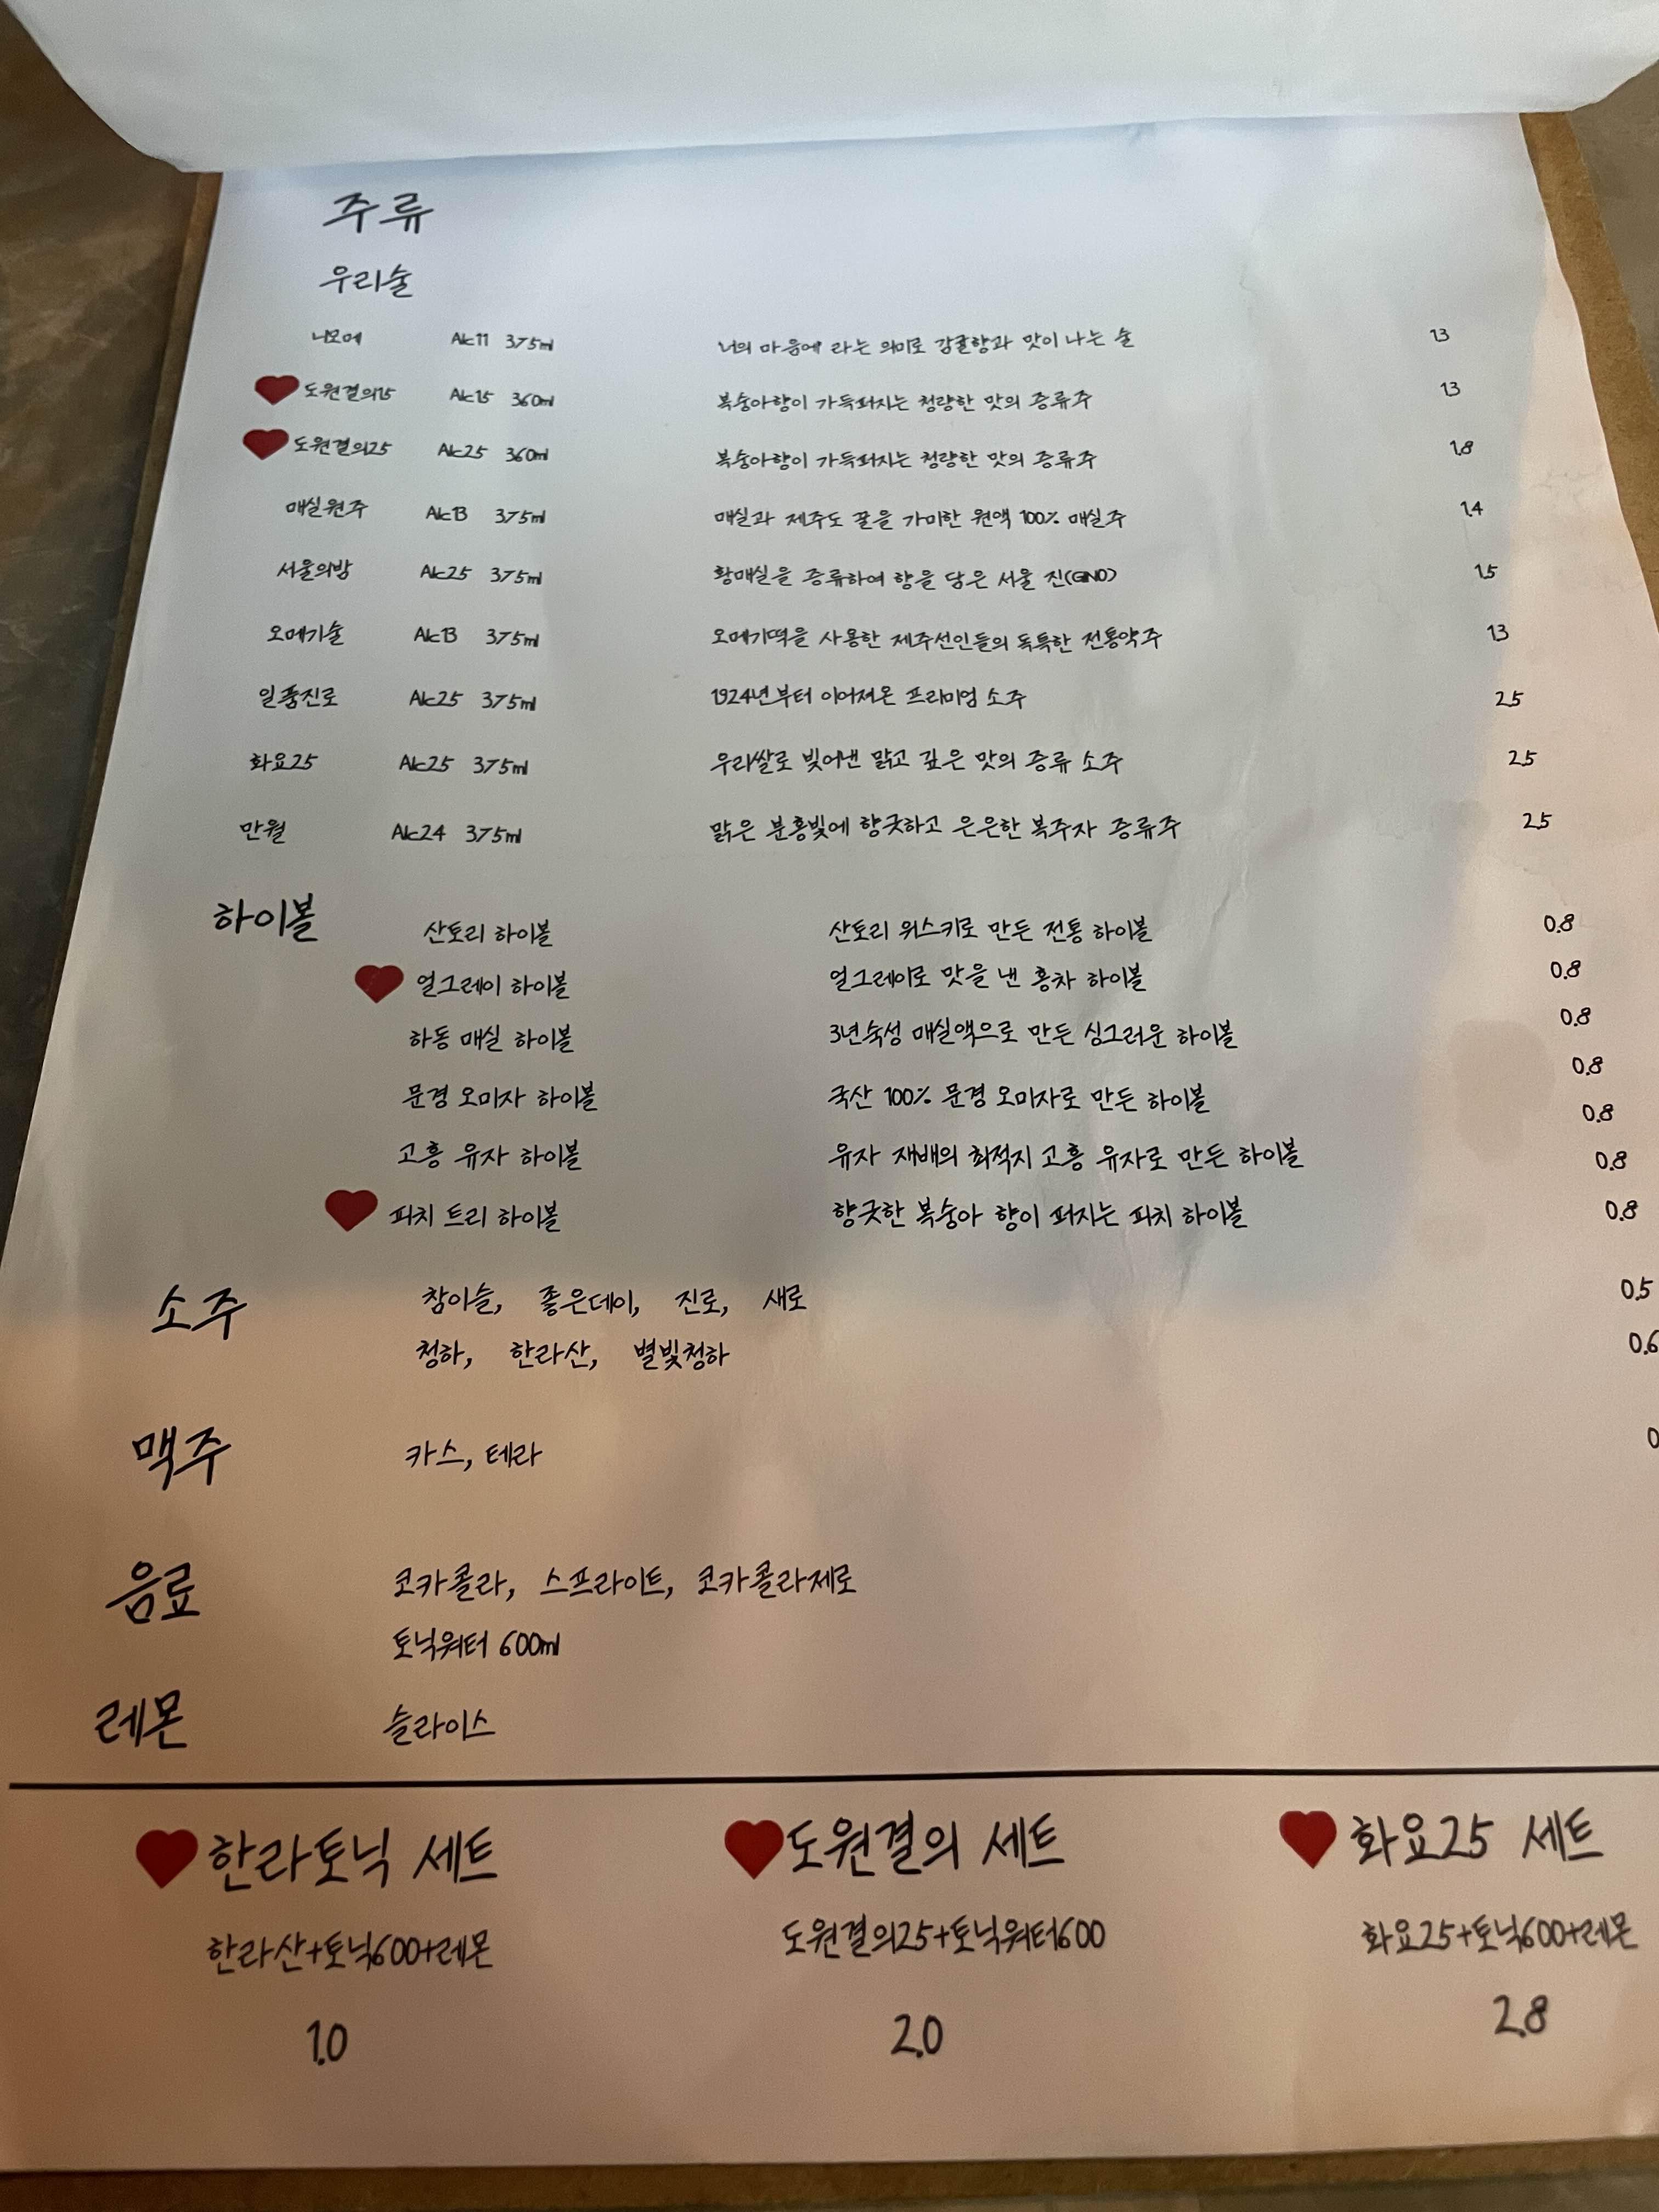 주류
우리술
니모메 Alc11 375ml 너의 마음에 라는 의미로 감귤향과 맛이 나는 술 1.3
도원결의15 Alc15 360ml 복숭아향이 가득퍼지는 청량한 맛의 증류주 1.3
도원결의25 Alc25 360ml 복숭아향이 가득퍼지는 청량한 맛의 증류주 1.8
매실원주 Alc13 375ml 매실과 제주도 꿀을 가미한 원액 100% 매실주 1.4
서울의밤 Alc25 375ml 황매실을 증류하여 향을 담은 서울 진(GNO) 1.5
오메기술 Alc13 375ml 오메기떡을 사용한 제주선인들의 독특한 전통약주 1.3
일품진로 Alc25 375ml 1924년부터 이어져온 프리미엄 소주 2.5
화요25 Alc25 375ml 우리쌀로 빚어낸 맑고 깊은 맛의 증류 소주 2.5
만월 Alc24 375ml 맑은 분홍빛에 향긋하고 은은한 복주자 증류주 2.5
하이볼 산토리 하이볼 산토리 위스키로 만든 전통 하이볼 0.8
얼그레이 하이볼 얼그레이로 맛을 낸 홍차 하이볼 0.8
하동 매실 하이볼 3년숙성 매실액으로 만든 싱그러운 하이볼 0.8
0.8
문경 오미자 하이볼 국산 100% 문경 오미자로 만든 하이볼 0.8
고흥 유자 하이볼 유자 재배의 최적지 고흥 유자로 만든 하이볼 0.8
피치 트리 하이볼 향긋한 복숭아 향이 퍼지는 피치 하이볼 0.8
소주 참이슬, 좋은데이, 진로, 새로 0.5
청하, 한라산, 별빛청하 0.6
맥주 카스, 테라 0
음료 코카콜라, 스프라이트, 코카콜라제로
토닉워터 600ml
레몬 슬라이스
한라토닉 세트
한라산+토닉600+레몬
1.0
도원결의 세트
도원결의25+토닉워터600
2.0
화요25 세트
화요25+토닉600+레몬
2.8